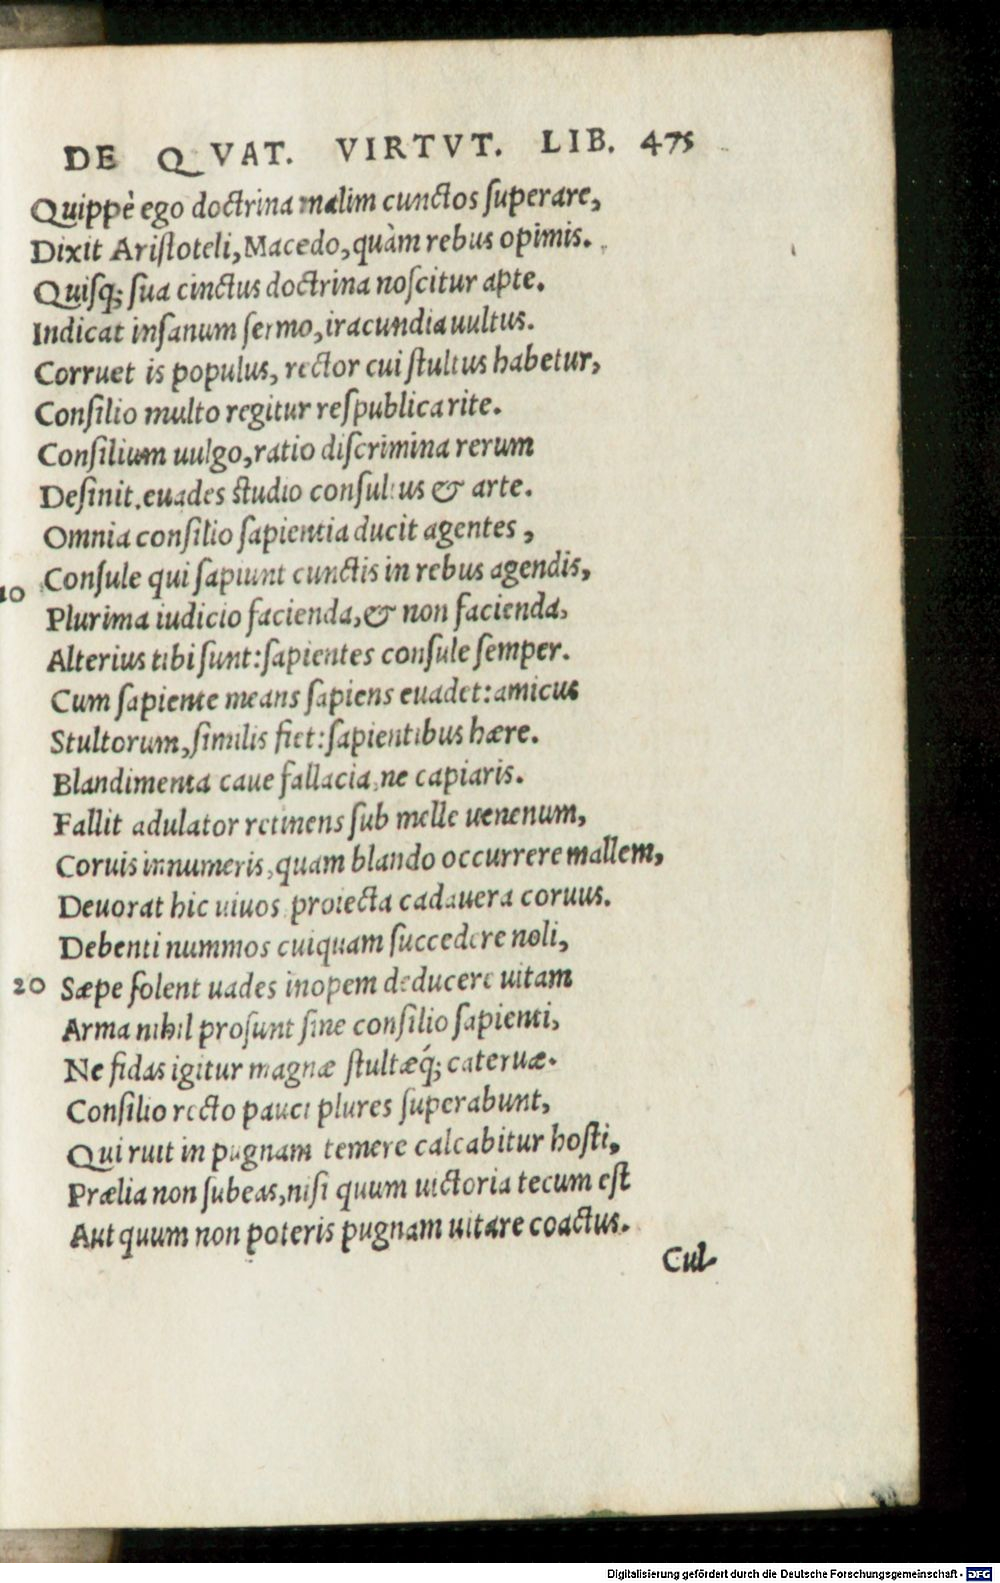 DE QVAT. VIRTVT. LIB. 475
Quippè ego doctrina malim cunctos ſuperare,
Dixit Ariſtoteli, Macedo, quàm rebus opimis.
Quiſq; ſua cinctus doctrina noſcitur apte.
Indicat inſanum ſermo, iracundia uultus.
Corruet is populus, rector cui ſtultus habetur,
Conſilio multo regitur reſpublica rite.
Conſilium uulgo, ratio diſcrimina rerum
Deſinit. euades ſtudio conſultus & arte.
Omnia conſilio ſapientia ducit agentes,
10 Conſule qui ſapiunt cunctis in rebus agendis,
Plurima iudicio facienda, & non facienda,
Alterius tibi ſunt: ſapientes conſule ſemper.
Cum ſapiente means ſapiens euadet: amicus
Stultorum, ſimilis fiet: ſapientibus hære.
Blandimenta caue fallacia, ne capiaris.
Fallit adulator retinens ſub melle uenenum,
Coruis innumeris, quam blando occurrere mallem,
Deuorat hic uiuos proiecta cadauera coruus.
Debenti nummos cuiquam ſuccedere noli,
20 Sæpe ſolent uades inopem deducere uitam
Arma nihil proſunt ſine conſilio ſapienti,
Ne fidas igitur magnæ ſtultæq́; cateruæ.
Conſilio recto pauci plures ſuperabunt,
Qui ruit in pugnam temere calcabitur hoſti,
Prælia non ſubeas, niſi quum uictoria tecum eſt
Aut quum non poteris pugnam uitare coactus.
Cul-
Digitalisierung gefördert durch die Deutsche Forschungsgemeinschaft - DFG